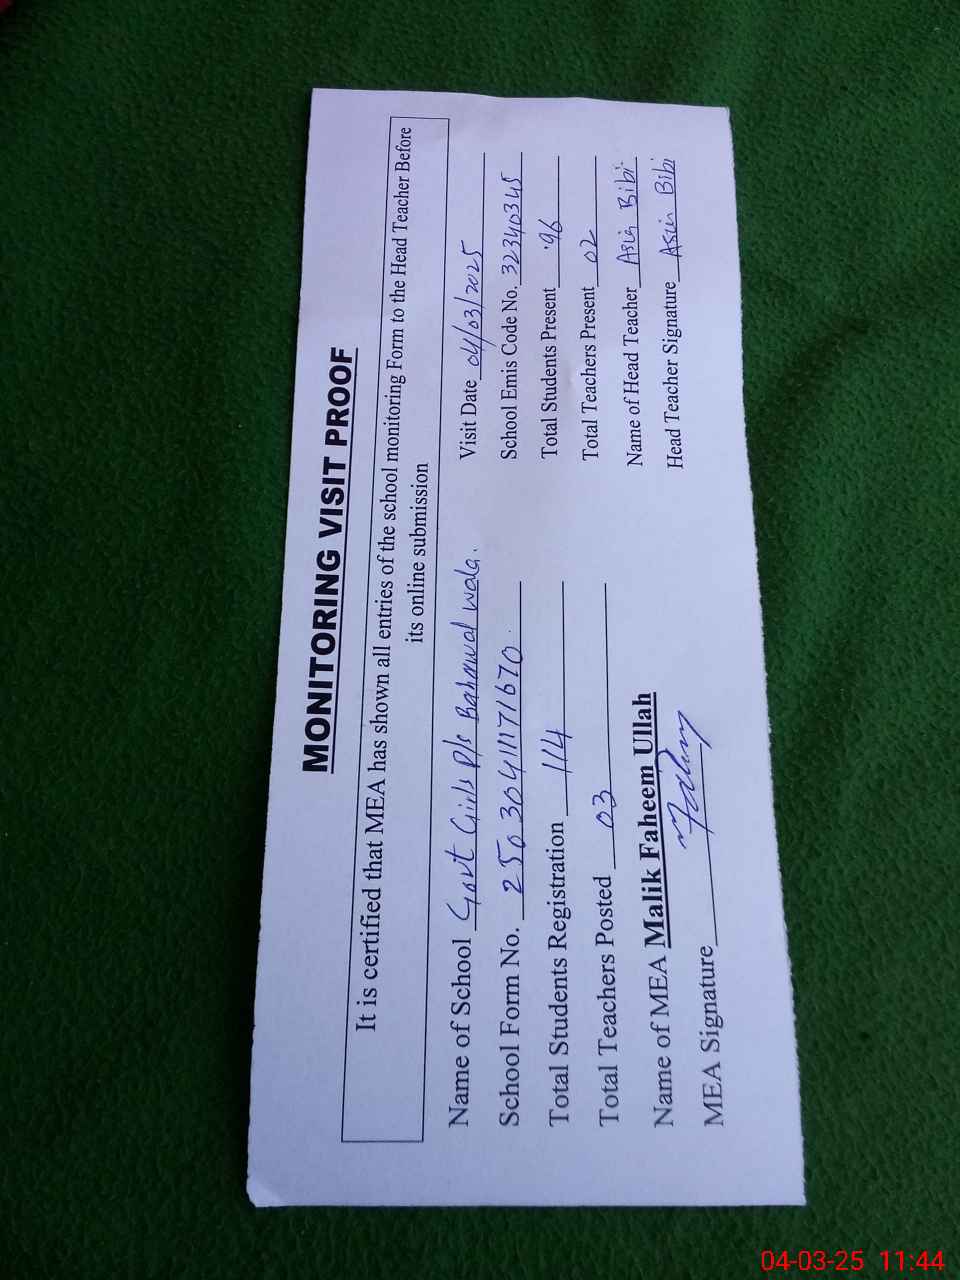 MONITORING VISIT PROOF
It is certified that MEA has shown all entries of the school monitoring Form to the Head Teacher Before
its online submission
Name of School Govt Girls P/S Bahawal wala.
Visit Date 04/03/2025
School Form No. 250304111171670
School Emis Code No. 32340345
Total Students Registration 114
Total Students Present 96
Total Teachers Posted 03
Total Teachers Present 02
Name of MEA Malik Faheem Ullah
Name of Head Teacher Asia Bibi
MEA Signature
Head Teacher Signature Asia Bibi
04-03-25 11:44